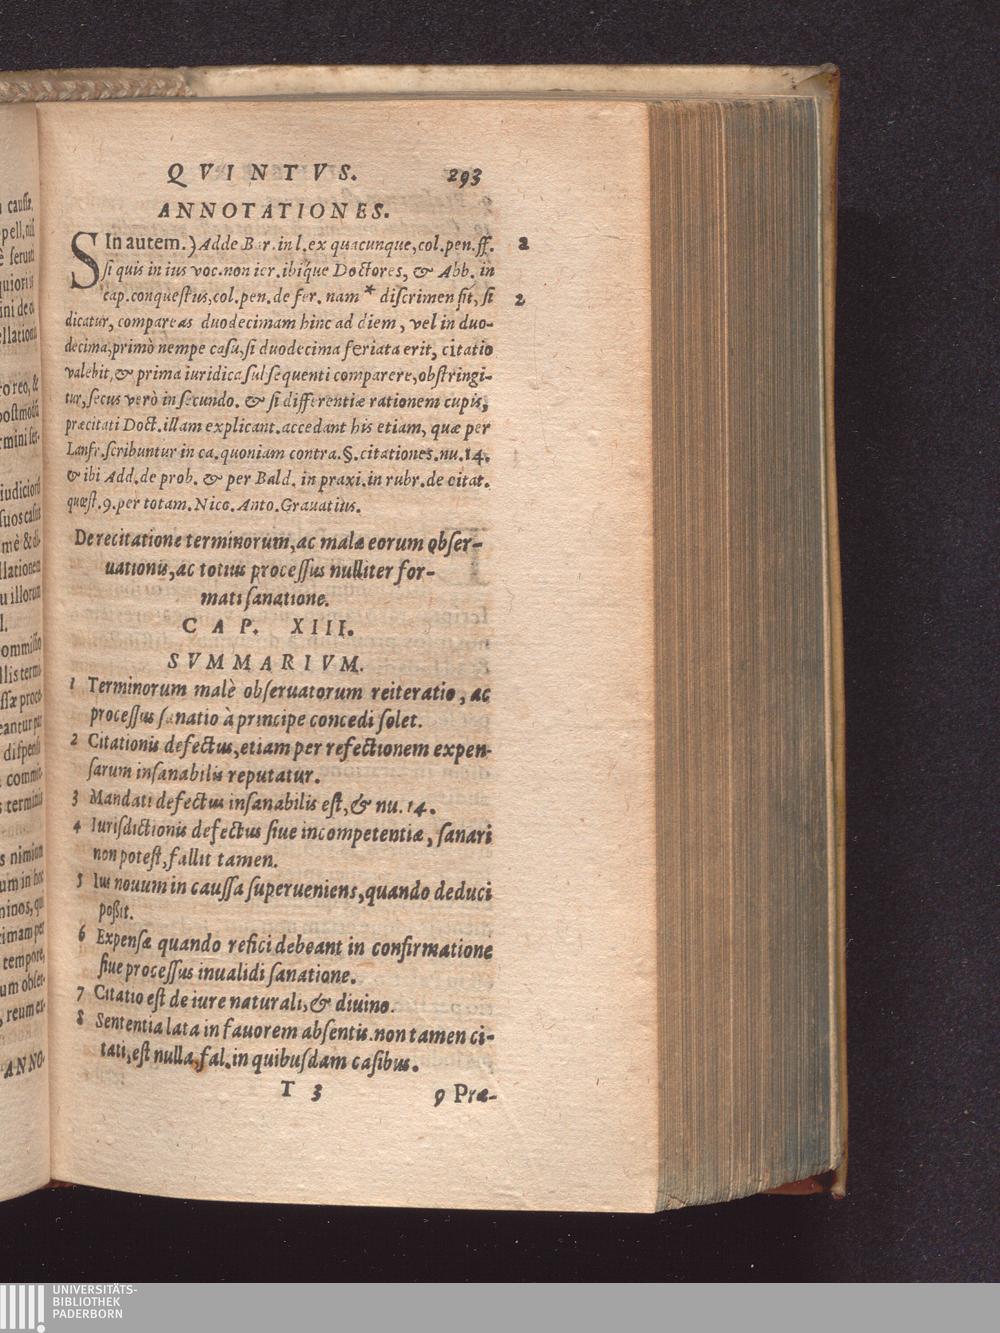 QVINTVS. 293
ANNOTATIONES.
SIn autem.) Adde Bar. in l. ex quacunque, col. pen. ff. a
si quis in ius voc. non ier. ibíq́ue Doctores, & Abb. in
cap. conquestus, col. pen. de fer. nam * discrimen sit, si 2
dicatur, compareas duodecimam hinc ad diem, vel in duo-
decima, primò nempe casu, si duodecima feriata erit, citatio
valebit, & prima iuridica subsequenti comparere, obstringi-
tur, secus verò in secundo. & si differentiæ rationem cupis,
præcitati Doct. illam explicant. accedant his etiam, quæ per
Lanfr. scribuntur in ca. quoniam contra. §. citationes. nu. 14.
& ibi Add. de prob. & per Bald. in praxi. in rubr. de citat.
quæst. 9. per totam. Nico. Anto. Grauatius.
De recitatione terminorum, ac malæ eorum obser-
uationis, ac totius processus nulliter for-
mati sanatione.
CAP. XIII.
SVMMARIVM.
1 Terminorum malè obseruatorum reiteratio, ac
processus sanatio à principe concedi solet.
2 Citationis defectus, etiam per refectionem expen-
sarum insanabilis reputatur.
3 Mandati defectus insanabilis est, & nu. 14.
4 Iurisdictionis defectus siue incompetentiæ, sanari
non potest, fallit tamen.
5 Ius nouum in caussa superueniens, quando deduci
poßit.
6 Expensæ quando refici debeant in confirmatione
siue processus inualidi sanatione.
7 Citatio est de iure naturali, & diuino.
8 Sententia lata in fauorem absentis. non tamen ci-
tati, est nulla, fal. in quibusdam casibus.
T 3 9 Præ-
caussæ,
ANNO-
UNIVERSITÄTS-
BIBLIOTHEK
PADERBORN